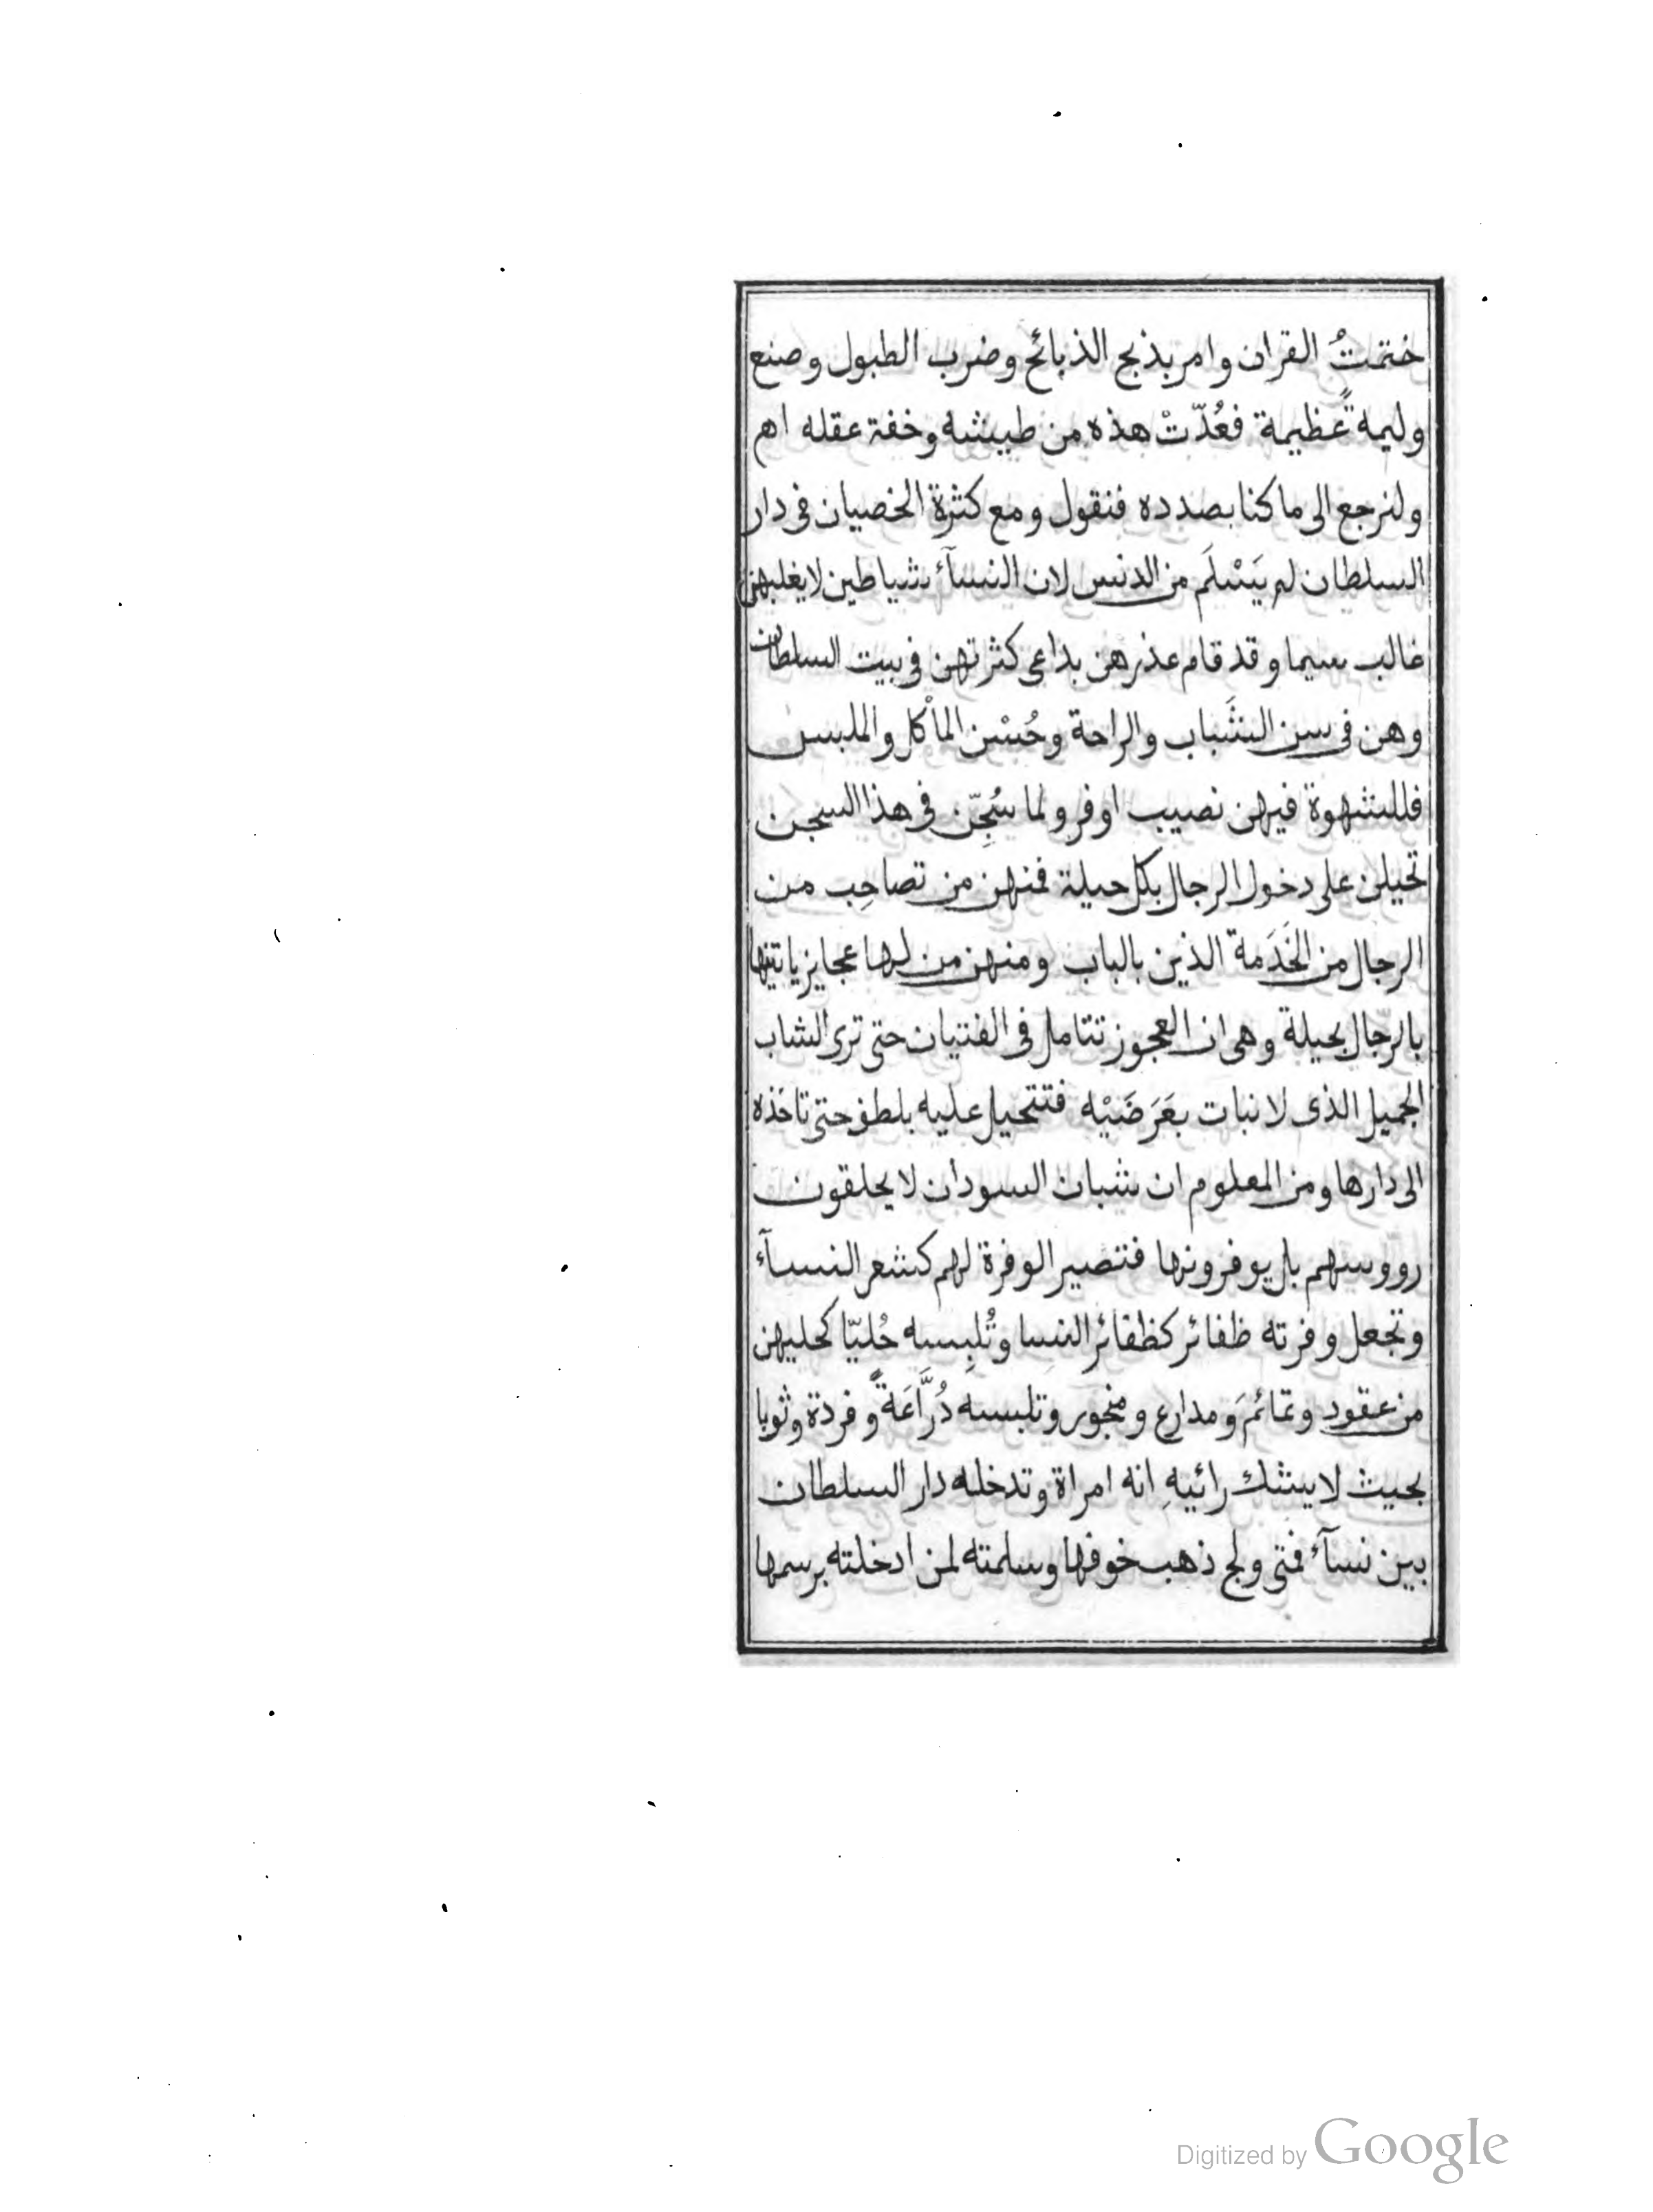 ختمتُ القران وامر بذبح الذبائح وضرب الطبول وصنع
وليمة عظيمة فعُدّتْ هذه من طيشه وخفة عقله اهـ
ولنرجع الى ما كنا بصدده فنقول ومع كثرة الخصيان فى دار
السلطان لم يَسْلَم من الدنس لان النسآء شياطين لا يغلبهن
غالب سيما وقد قام عذرهن بداعى كثرتهن فى بيت السلطان
وهن فى سن الشَباب والراحة وحُسْن المأكل والملبس
فللشهوة فيهن نصيب اوفر ولما سُجِنّ فى هذا السجن
تحيلن على دخول الرجال بكل حيلة فمنهن من تصاحِب من
الرجال من الخَدَمة الذين بالباب ومنهن من لها عجايز ياتينها
بالرجال بحيلة وهى ان العجوز تتامل فى الفتيان حتى ترى الشاب
الجميل الذى لا نبات بعَرَضَيْه فتتحيل عليه بلطف حتى تاخذه
الى دارها ومن المعلوم ان شبان السودان لا يحلقون
رووسهم بل يوفرونها فتصير الوفرة لهم كشعر النسآء
وتجعل وفرته ظفائر كظفائر النسا وتُلبِسه حُليّا كحليهن
من عقود وتمائمَ ومدارع ومنجور وتلبسه دُرَّاعَةً وفردة وثوبا
بحيث لا يشك رائيهِ انه امراة وتدخله دار السلطان
بين نسآء فمتى ولج ذهب خوفها وسلمته لمن ادخلته برسمها
Digitized by Google